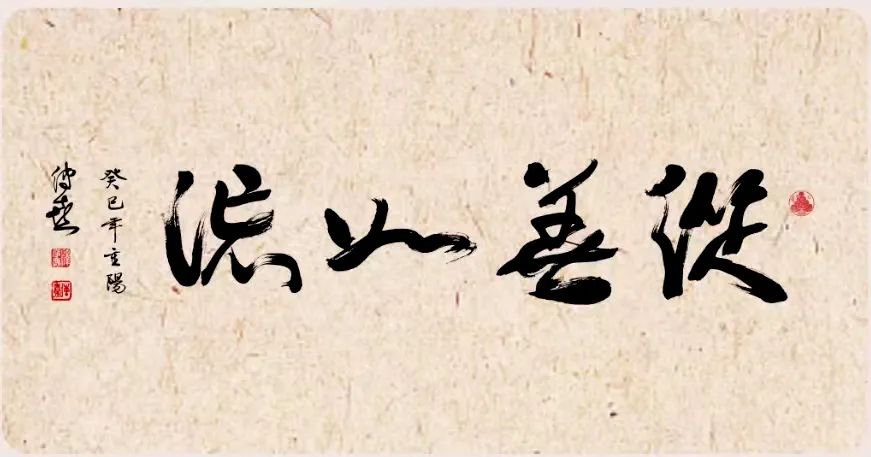 從善如流
癸巳年重陽
傳喜